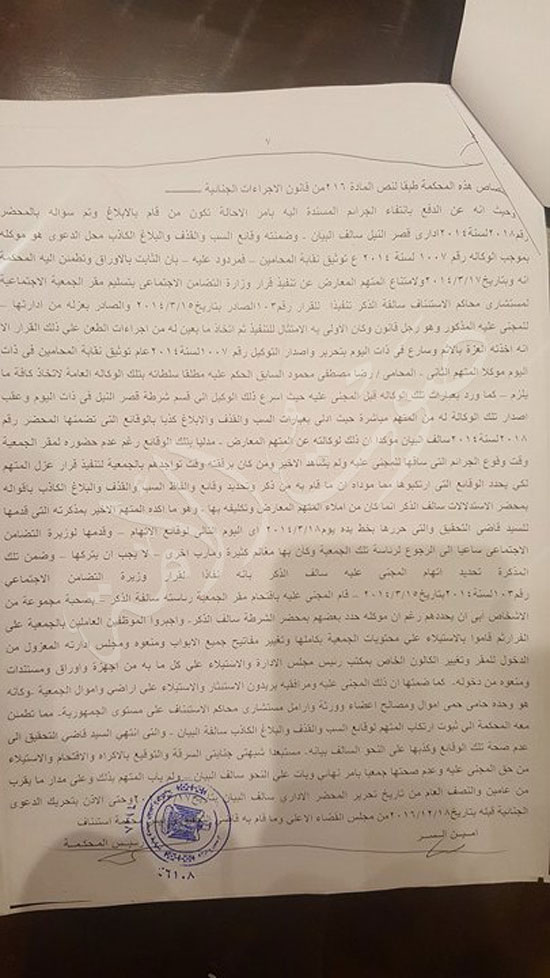 ٧
صاص هذه المحكمة طبقا لنص المادة ٢١٦ من قانون الاجراءات الجنائية
وحيث انه عن الدفع بانتفاء الجرائم المسندة اليه بامر الاحالة تكون من قام بالابلاغ وتم سؤاله بالمحضر
رقم ٢٠١٨ لسنة ٢٠١٤ ادارى قصر النيل سالف البيان - وضمنته وقائع السب والقذف والبلاغ الكاذب محل الدعوى هو موكله
بموجب الوكاله رقم ١٠٠٧ لسنة ٢٠١٤ ع توثيق نقابة المحامين – فمردود عليه – بان الثابت بالاوراق وتطمئن اليه المحكمة
انه وبتاريخ ٢٠١٤/٣/١٧ ولامتناع المتهم المعارض عن تنفيذ قرار وزارة التضامن الاجتماعى بتسليم مقر الجمعية الاجتماعية
لمستشارى محاكم الاستئناف سالفة الذكر تنفيذا للقرار رقم ١٠٣ الصادر بتاريخ ٢٠١٤/٣/١٥ والصادر بعزله من ادارتها –
للمجنى عليه المذكور وهو رجل قانون وكان الاولى به الامتثال للتنفيذ ثم اتخاذ ما يعين له من اجراءات الطعن علي ذلك القرار الا
انه اخذته العزة بالاثم وسارع فى ذات اليوم بتحرير واصدار التوكيل رقم ١٠٠٧ لسنة ٢٠١٤ عام توثيق نقابة المحامين فى ذات
اليوم موكلا المتهم الثانى – المحامى / رضا مصطفى محمود السابق الحكم عليه مطلقا سلطاته بتلك الوكالة العامة لاتخاذ كافة ما
يلزم – كما ورد بعبارات تلك الوكاله قبل المجنى عليه حيث اسرع ذلك الوكيل الى قسم شرطة قصر النيل فى ذات اليوم وعقب
اصدار تلك الوكالة له من المتهم مباشرة حيث ادلى بعبارات السب والقذف والابلاغ كذبا بالوقائع التى تضمنها المحضر رقم
٢٠١٨ لسنة ٢٠١٤ سالف البيان مؤكدا ان ذلك لوكالته عن المتهم المعارض – مدليا بتلك الوقائع رغم عدم حضوره لمقر الجمعية
وقت وقوع الجرائم التى ساقها للمجنى عليه ولم يشاهد الاخير ومن كان برفقته وقت تواجدهم بالجمعية لتنفيذ قرار عزل المتهم
لكي يحدد الوقائع التى ارتكبوها مما موداه ان ما قام به من ذكر وتحديد وقائع والفاظ السب والقذف والبلاغ الكاذب باقواله
بمحضر الاستدلالات سالف الذكر انما كان من املاء المتهم المعارض وتكليفه بها – وهو ما اكده المتهم الاخير بمذكرته التى قدمها
للسيد قاضى التحقيق والتى حررها بخط يده يوم ٢٠١٤/٣/١٨ اى اليوم التالى لوقائع الاتهام – وقدمها لوزيرة التضامن
الاجتماعى ساعيا الى الرجوع لرئاسة تلك الجمعية وكان بها مغانم كثيرة ومأرب اخرى – لا يجب ان يتركها – وضمن تلك
المذكرة تحديد اتهام المجنى عليه سالف الذكر بانه نفاذا لقرار وزيرة التضامن الاجتماعي
رقم ١٠٣ لسنة ٢٠١٤ بتاريخ ٢٠١٤/٣/١٥ – قام المجنى عليه باقتحام مقر الجمعية رئاسته سالفة الذكر – بصحبة مجموعة من
الاشخاص ابى ان يحددهم رغم ان موكله حدد بعضهم بمحضر الشرطة سالف الذكر. واجبروا الموظفين العاملين بالجمعية على
الفرار ثم قاموا بالاستيلاء علي محتويات الجمعية بكاملها وتغيير مفاتيح جميع الابواب ومنعوه ومجلس دارته المعزول من
الدخول للمقر وتغيير الكالون الخاص بمكتب رئيس مجلس الادارة والاستيلاء علي كل ما به من اجهزة واوراق ومستندات
ومنعوه من دخوله. كما ضمنها ان ذلك المجنى عليه ومرافقيه يريدون الاستئثار والاستيلاء علي اراضي واموال الجمعية .وكانه
هو وحده حامى حمى اموال ومصالح اعضاء وورثة وارامل مستشارى محاكم الاستئناف على مستوى الجمهورية. مما تطمئن
معه المحكمة الى ثبوت ارتكاب المتهم لوقائع السب والقذف والبلاغ الكاذب سالفة البيان – والتى انتهي السيد قاضي التحقيق الى
عدم صحة تلك الوقائع وكذبها علي النحو السالف بيانه. مستبعدا شبهتى جنايتى السرقة والتوقيع بالاكراه والاقتحام والاستيلاء
من حق المجني عليه وعدم صحتها جمعيا بامر نهائى وبات علي النحو سالف البيان – ولم ياب المتهم بذلك وعلى مدار ما يقرب
من عامين والنصف العام من تاريخ تحرير المحضر الادارى سالف البيان وحتى الاذن بتحريك الدعوى
الجنائية قبله بتاريخ ٢٠١٦/١٢/١٨ من مجلس القضاء الاعلي وما قام به استئناف
امين السر
رئيس المحكمة
٥٦١٠٨